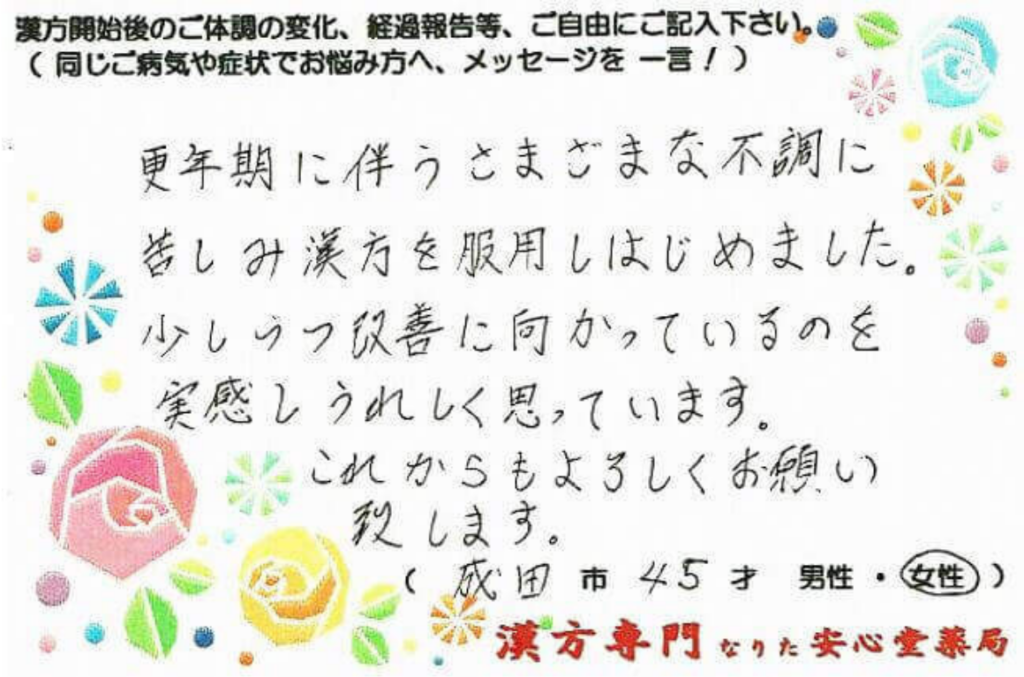 漢方開始後のご体調の変化、経過報告等、ご自由にご記入下さい。
（同じご病気や症状でお悩み方へ、メッセージを 一言！）
更年期に伴うさまざまな不調に
苦しみ漢方を服用しはじめました。
少しづつ改善に向かっているのを
実感しうれしく思っています。
これからもよろしくお願い
致します。
（ 成田 市 45 才 男性・女性 ）
漢方専門 なりた 安心堂薬局